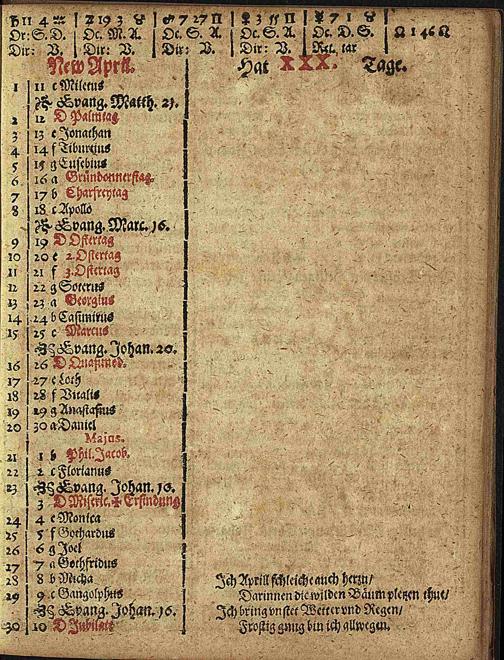 ♄ 11 4 ♒ ♃ 19 3 ♉ ♂ 7 27 ♊ ♀ 3 15 ♊ ☿ 7 1 ♉ ☊ 1 46 ♌
Or: S. D. Oc. M. A. Oc. S. A. Oc. S. A. Oc. D. S.
Dir: V. Dir: V. Dir: V. Dir: V. Ret. tar
New April. Hat XXX. Tage.
1 11 c Miletus
Evang. Matth. 21.
2 12 D Palmtag
3 13 e Jonathan
4 14 f Tiburtius
5 15 g Eusebius
6 16 a Gründonnerstag.
7 17 b Charfreytag
8 18 c Apollo
Evang. Marc. 16.
9 19 D Ostertag
10 20 e 2. Ostertag
11 21 f 3. Ostertag
12 22 g Soterus
13 23 a Georgius
14 24 b Casimirus
15 25 c Marcus
Evang. Johan. 20.
16 26 D Quasimod.
17 27 e Loth
18 28 f Vitalis
19 29 g Anastasius
20 30 a Daniel
Majus.
21 1 b Phil. Jacob.
22 2 c Florianus
23 Evang. Johan. 10.
3 D Miseric. ✠ Erfindung
24 4 e Monica
25 5 f Gothardus
26 6 g Joel
27 7 a Gothfridus
28 8 b Micha
29 9 c Gangolphus
Evang. Johan. 16.
30 10 D Jubilate
Ich Aprill schleiche auch herzu/
Darinnen die wilden Bäum pletzen thut/
Ich bring vnstet Wetter vnd Regen/
Frostig gnug bin ich allwegen.